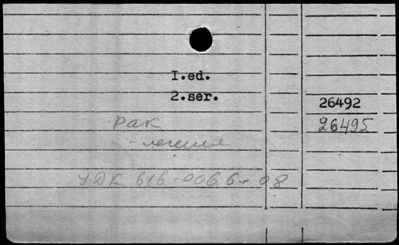 I.ed.
2.ser.
26492
26495
рак
- лечение
УДК 616-006.6-08